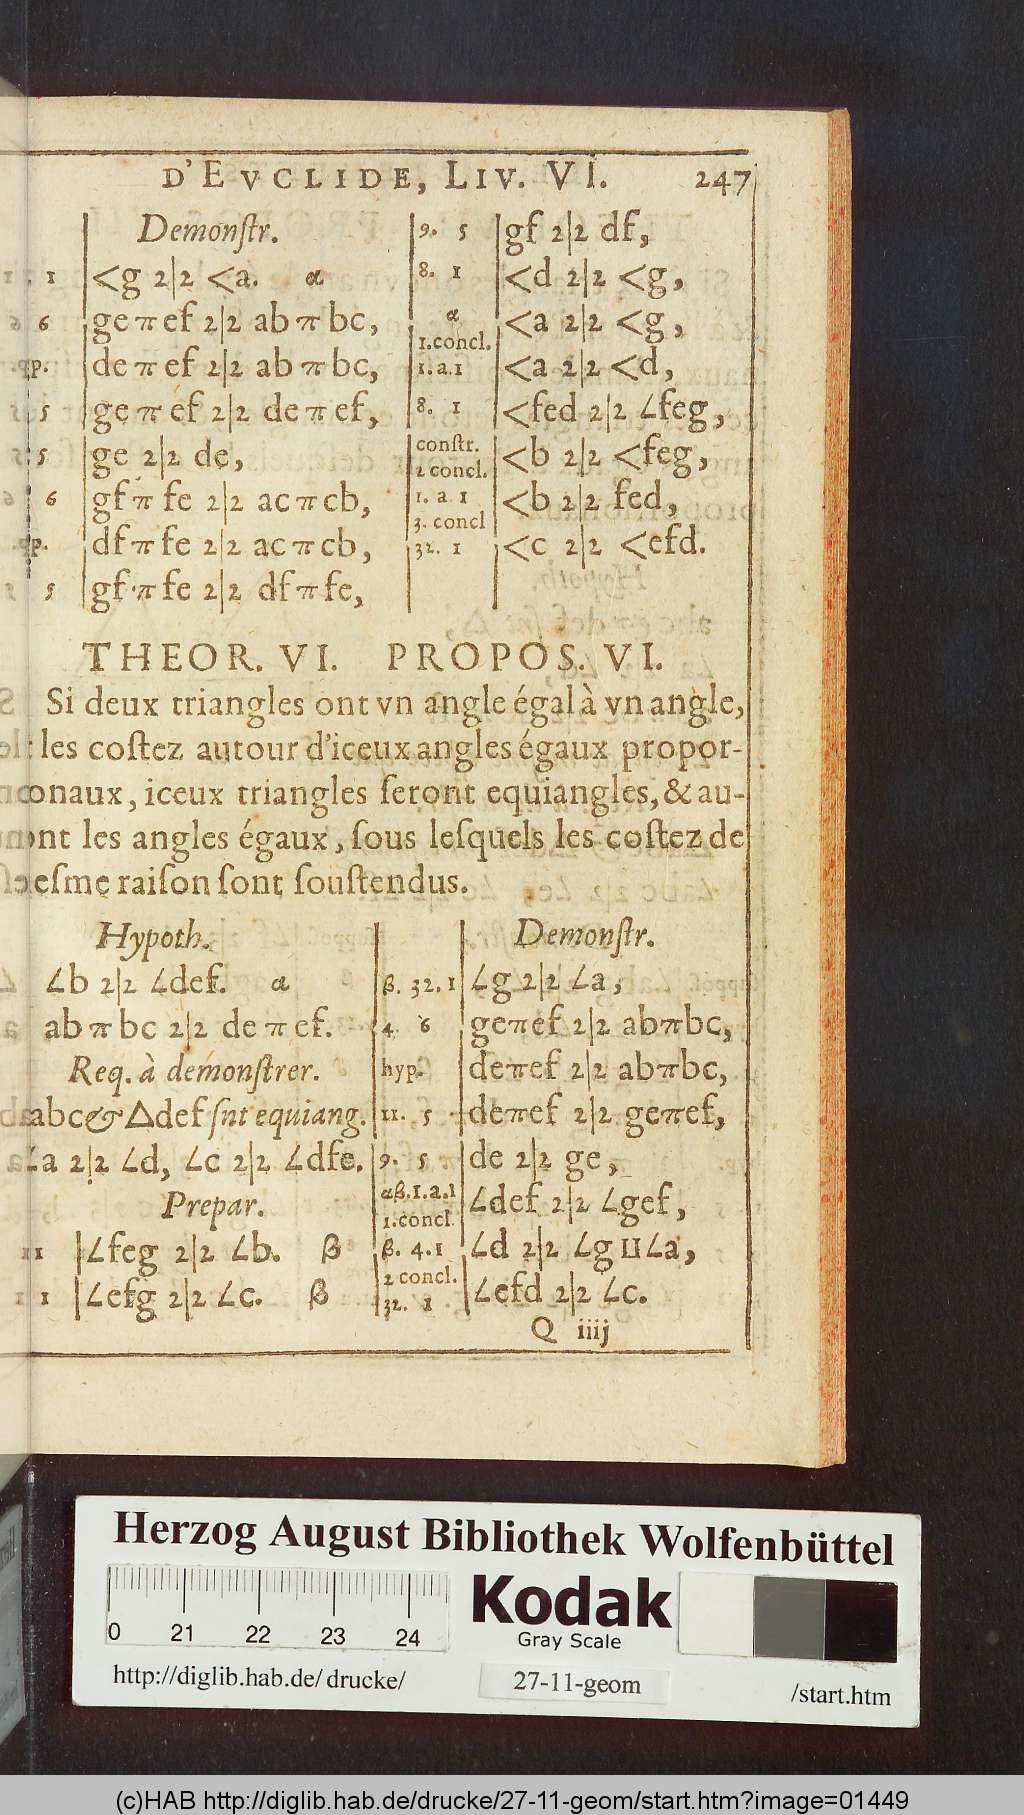 D'EVCLIDE, LIV. VI. 247
Demonſtr.
1 <g 2|2 <a. α
6 ge π ef 2|2 ab π bc,
de π ef 2|2 ab π bc,
5 ge π ef 2|2 de π ef,
5 ge 2|2 de,
6 gf π fe 2|2 ac π cb,
df π fe 2|2 ac π cb,
5 gf π fe 2|2 df π fe,
9. 5 gf 2|2 df,
8. 1 <d 2|2 <g,
α <a 2|2 <g,
1.concl.
1.a.1 <a 2|2 <d,
8. 1 <fed 2|2 ∠feg,
conſtr.
2 concl. <b 2|2 <feg,
1. a 1 <b 2|2 fed,
3. concl
32. 1 <c 2|2 <efd.
THEOR. VI. PROPOS. VI.
Si deux triangles ont vn angle égal à vn angle,
les coſtez autour d'iceux angles égaux propor-
onaux, iceux triangles ſeront equiangles, & au-
ont les angles égaux, ſous leſquels les coſtez de
eſme raiſon ſont ſouſtendus.
Hypoth.
∠b 2|2 ∠def. α
ab π bc 2|2 de π ef.
Req. à demonſtrer.
abc & Δdef ſnt equiang.
∠a 2|2 ∠d, ∠c 2|2 ∠dfe.
Prepar.
∠feg 2|2 ∠b. β
1 ∠efg 2|2 ∠c. β
Demonſtr.
β. 32. 1 ∠g 2|2 ∠a,
4 6 geπef 2|2 abπbc,
hyp. deπef 2|2 abπbc,
11. 5 deπef 2|2 geπef,
9. 5 de 2|2 ge,
αβ.1.a.1 ∠def 2|2 ∠gef,
1.concl.
β. 4.1 ∠d 2|2 ∠g ⊔⊔ ∠a,
2 concl.
32. 1 ∠efd 2|2 ∠c.
Q iiij
Herzog August Bibliothek Wolfenbüttel
0 21 22 23 24
Kodak
Gray Scale
http://diglib.hab.de/ drucke/
27-11-geom
/start.htm
(c)HAB http://diglib.hab.de/drucke/27-11-geom/start.htm?image=01449